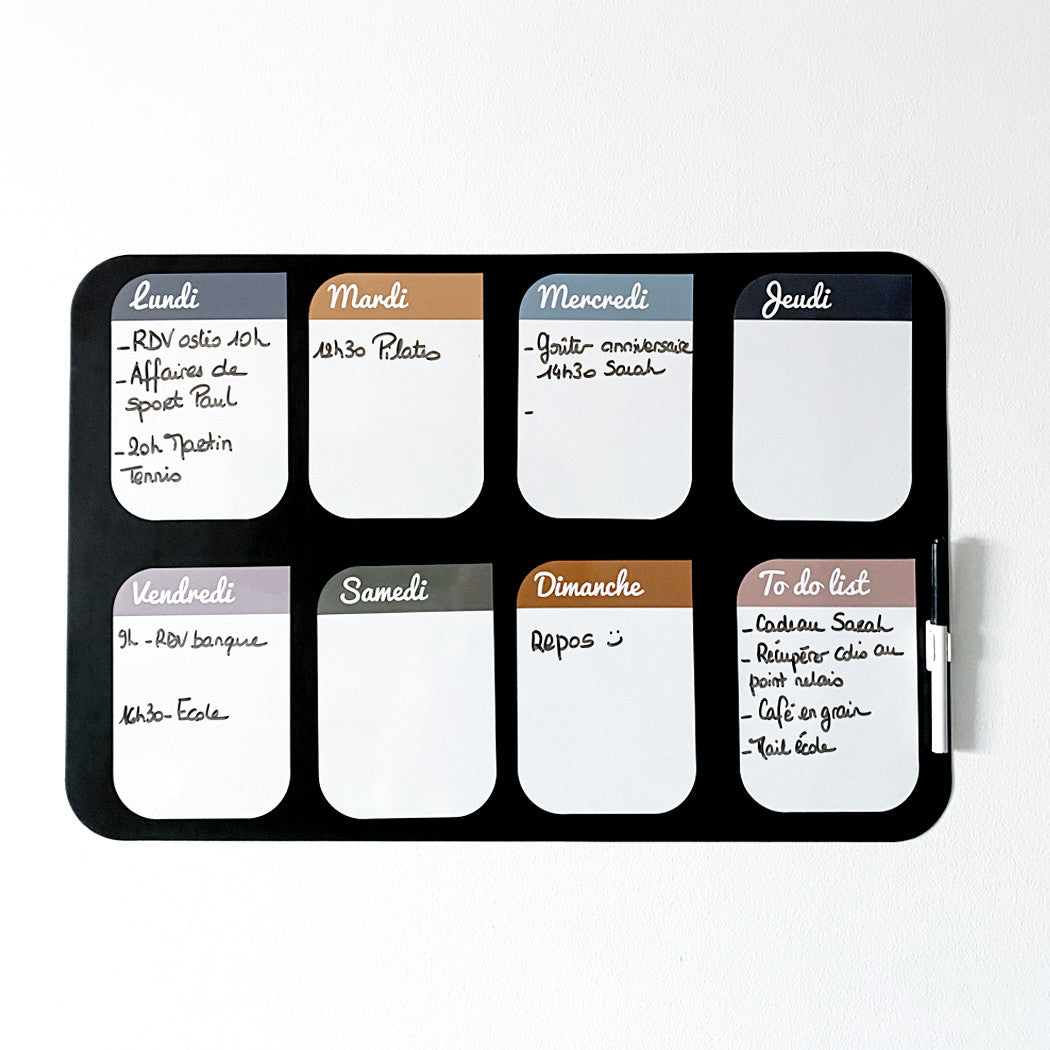 Lundi
-RDV ostéo 10h
-Affaires de
sport Paul
-20h Martin
Tennis
Mardi
12h30 Pilates
Mercredi
-Goûter anniversaire
14h30 Sarah
-
Jeudi
Vendredi
9h -RDV banque
16h30-Ecole
Samedi
Dimanche
Repos :)
To do list
-Cadeau Sarah
-Récupérer colis au
point relais
-Café en grain
-Mail école